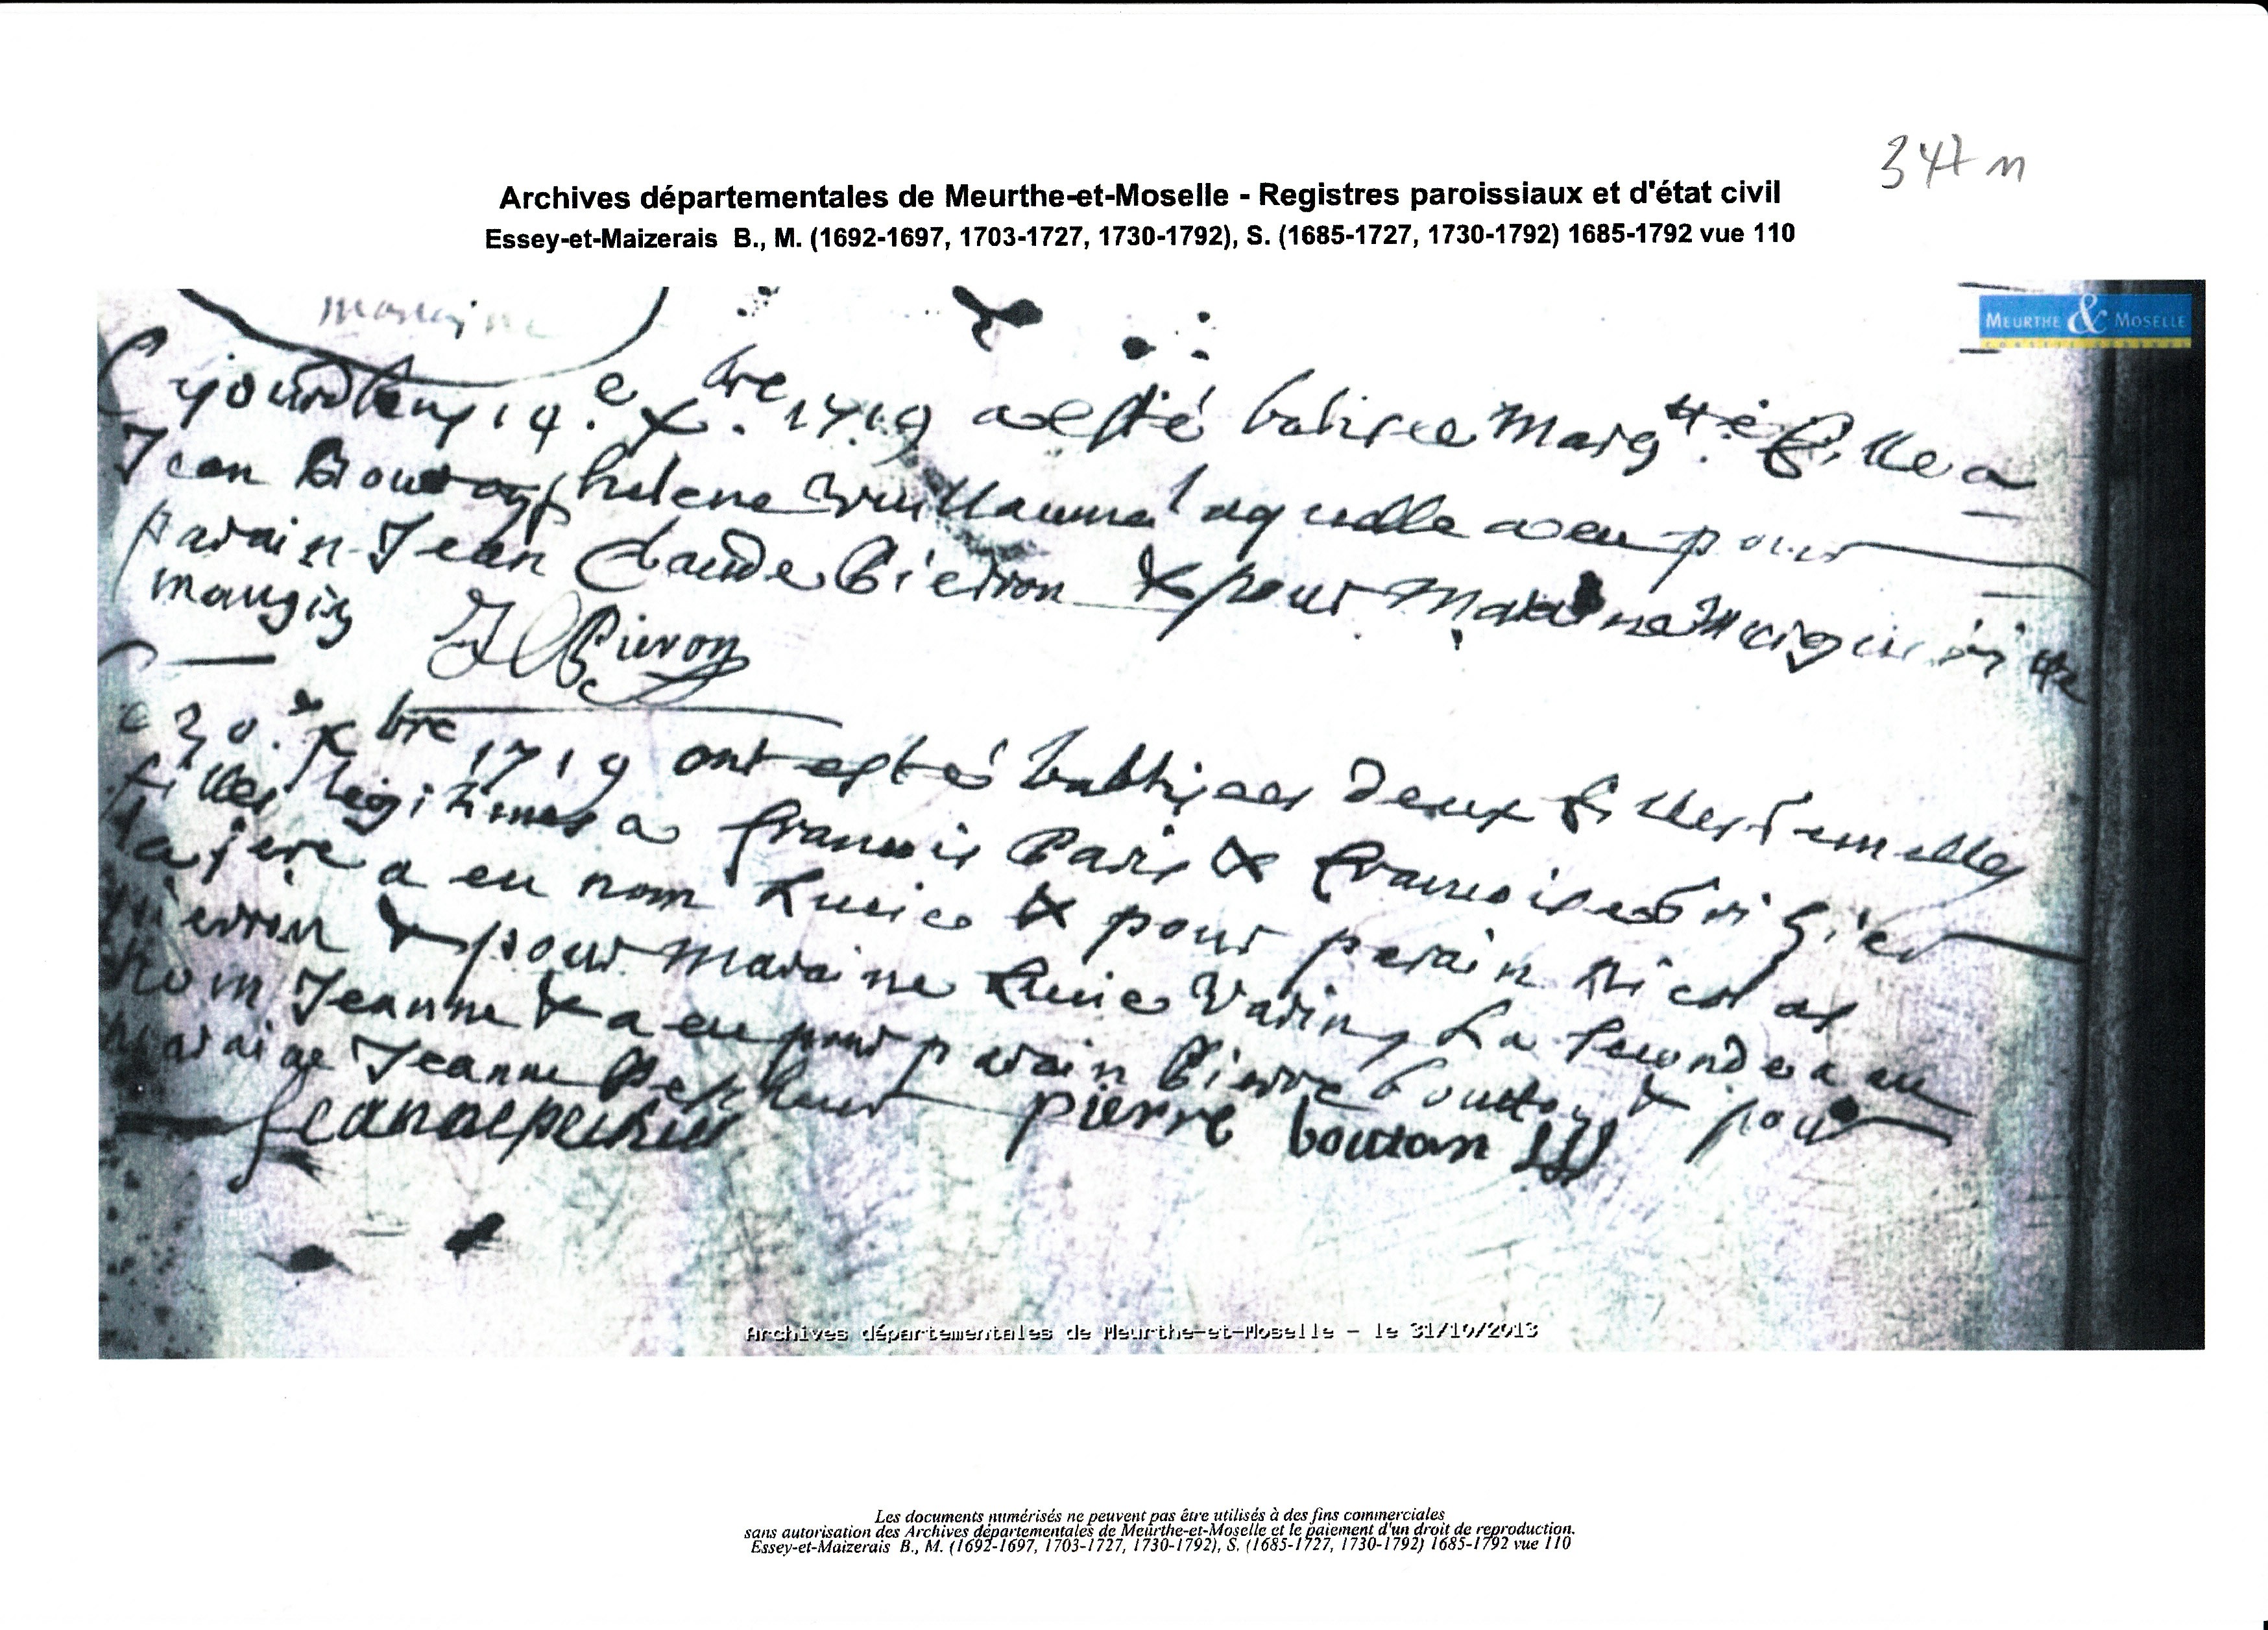 347 m
Archives départementales de Meurthe-et-Moselle - Registres paroissiaux et d'état civil
Essey-et-Maizerais B., M. (1692-1697, 1703-1727, 1730-1792), S. (1685-1727, 1730-1792) 1685-1792 vue 110
MEURTHE & MOSELLE
14.e X.bre 1719 a esté batisee Marg.tte fille a
Jean helene Vuillaume laquelle a eu pour
parain Jean Claude Pierron & pour maraine
maugin JC Pierron
ce 30.e Xbre 1719 ont esté batisees deux filles Jumelles
filles legitimes a francois Paris & francoise
la jere a eu nom Lucie & pour parain Nicolas
pierron & pour maraine Lucie Varin, La seconde a eu
nom Jeanne & a eu pour parain Pierre bouton & pour
maraine Jeanne
pierre bouton
Archives départementales de Meurthe-et-Moselle - le 31/10/2013
Les documents numérisés ne peuvent pas être utilisés à des fins commerciales
sans autorisation des Archives départementales de Meurthe-et-Moselle et le paiement d'un droit de reproduction.
Essey-et-Maizerais B., M. (1692-1697, 1703-1727, 1730-1792), S. (1685-1727, 1730-1792) 1685-1792 vue 110